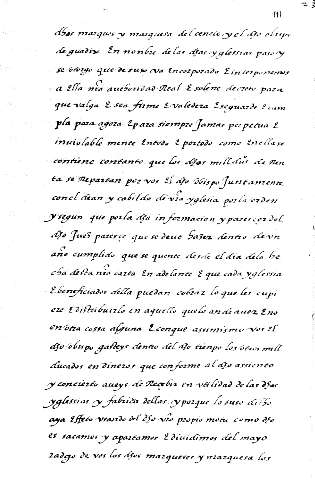 dhos marques y marquesa del cenete y el dho obispo
de guadix En nonbre de las dhas yglesias para y
se bargo que de suso va Encorporado E interponemos
a Ella nra autoridad Real E solene decreto para
que valga E sea firme E valedera E se guarde E cum
pla para agora E para siempre Jamas perpetua E
inviolable mente En todo E por todo como En ella se
contiene con tanto que los dhos mill dus de Ren
ta se Repartan por vos El dho obispo Juntamente
con el dean y cabildo de vra yglesia por la orden
y segun que por la dha informacion y parescer del
dho Juez paresce que se deve hazer dentro de un
año cumplido que se quente desde el dia de la he
cha desta nra carta En adelante E que cada yglesia
E beneficiados della puedan cobrar lo que les cupi
ere E distribuirlo en aquello que lo an de aver E no
en otra cosa alguna E con que asimismo vos el
dho obispo gasteys dentro del dho tienpo los mill
ducados en dineros que conforme al dho asiento
y concierto aveys de Recebir en utilidad de las dhas
yglesias y fabrica dellas y porque lo suso dicho
aya Effeto usando del dho nro propio motu como dho
es sacamos y apartamos E dividimos del mayo
radgo de vos los dhos marqueses y marquesa los